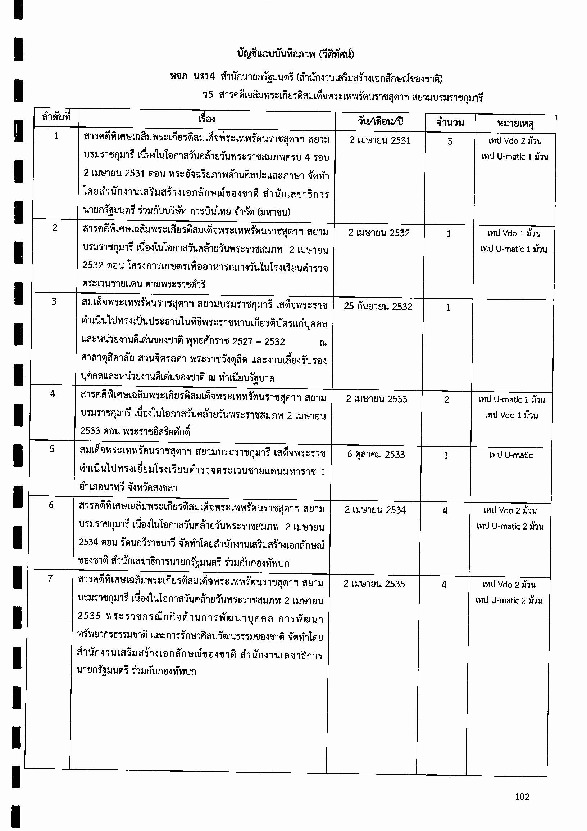 บัญชีแถบบันทึกภาพ (วีดิทัศน์)
หจภ นร5.4 สำนักนายกรัฐมนตรี (สำนักงานเสริมสร้างเอกลักษณ์ของชาติ)
ว5 สารคดีเฉลิมพระเกียรติสมเด็จพระเทพรัตนราชสุดาฯ สยามบรมราชกุมารี
ลำดับที่ เรื่อง วัน/เดือน/ปี จำนวน หมายเหตุ
1 สารคดีพิเศษเฉลิมพระเกียรติสมเด็จพระเทพรัตนราชสุดาฯ สยาม 2 เมษายน 2531 3 เทป Vdo 2 ม้วน
บรมราชกุมารี เนื่องในโอกาสวันคล้ายวันพระราชสมภพครบ 4 รอบ เทป U-matic 1 ม้วน
2 เมษายน 2531 ตอน พระอัจฉริยภาพด้านศิลปะและภาษา จัดทำ
โดยสำนักงานเสริมสร้างเอกลักษณ์ของชาติ สำนักเลขาธิการ
นายกรัฐมนตรี ร่วมกับบริษัท การบินไทย จำกัด (มหาชน)
2 สารคดีพิเศษเฉลิมพระเกียรติสมเด็จพระเทพรัตนราชสุดาฯ สยาม 2 เมษายน 2532 3 เทป Vdo 1 ม้วน
บรมราชกุมารี เนื่องในโอกาสวันคล้ายวันพระราชสมภพ 2 เมษายน เทป U-matic 1 ม้วน
2532 ตอน โครงการเกษตรเพื่ออาหารกลางวันในโรงเรียนตำรวจ
ตระเวนชายแดน ตามพระราชดำริ
3 สมเด็จพระเทพรัตนราชสุดาฯ สยามบรมราชกุมารี เสด็จพระราช 25 กันยายน 2532 1
ดำเนินไปทรงเป็นประธานในพิธีพระราชทานเกียรติบัตรแก่บุคคล
และหน่วยงานดีเด่นของชาติ พุทธศักราช 2527 – 2532 ณ
ศาลาดุสิดาลัย สวนจิตรลดา พระราชวังดุสิต และงานเลี้ยงรับรอง
บุคคลและหน่วยงานดีเด่นของชาติ ณ ทำเนียบรัฐบาล
4 สารคดีพิเศษเฉลิมพระเกียรติสมเด็จพระเทพรัตนราชสุดาฯ สยาม 2 เมษายน 2533 2 เทป U-matic 1 ม้วน
บรมราชกุมารี เนื่องในโอกาสวันคล้ายวันพระราชสมภพ 2 เมษายน เทป Vdo 1 ม้วน
2533 ตอน พระราชอิสริยศักดิ์
5 สมเด็จพระเทพรัตนราชสุดาฯ สยามบรมราชกุมารี เสด็จพระราช 6 ตุลาคม 2533 1 เทป U-matic
ดำเนินไปทรงเยี่ยมโรงเรียนตำรวจตระเวนชายแดนมหาราช 1
อำเภอนาทวี จังหวัดสงขลา
6 สารคดีพิเศษเฉลิมพระเกียรติสมเด็จพระเทพรัตนราชสุดาฯ สยาม 2 เมษายน 2534 4 เทป Vdo 2 ม้วน
บรมราชกุมารี เนื่องในโอกาสวันคล้ายวันพระราชสมภพ 2 เมษายน เทป U-matic 2 ม้วน
2534 ตอน รัตนกวีราชนารี จัดทำโดยสำนักงานเสริมสร้างเอกลักษณ์
ของชาติ สำนักเลขาธิการนายกรัฐมนตรี ร่วมกับกองทัพบก
7 สารคดีพิเศษเฉลิมพระเกียรติสมเด็จพระเทพรัตนราชสุดาฯ สยาม 2 เมษายน 2535 4 เทป Vdo 2 ม้วน
บรมราชกุมารี เนื่องในโอกาสวันคล้ายวันพระราชสมภพ 2 เมษายน เทป U-matic 2 ม้วน
2535 พระราชกรณียกิจด้านการพัฒนาบุคคล การพัฒนา
ทรัพยากรธรรมชาติ และการรักษาศิลปวัฒนธรรมของชาติ จัดทำโดย
สำนักงานเสริมสร้างเอกลักษณ์ของชาติ สำนักงานเลขาธิการ
นายกรัฐมนตรี ร่วมกับกองทัพบก
102